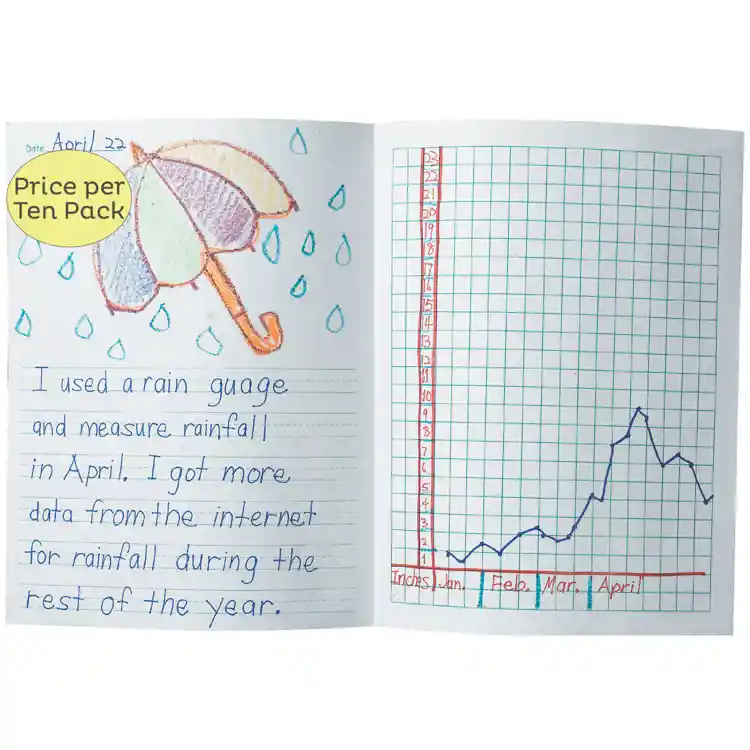 Date April 22
Price per
Ten Pack
I used a rain guage
and measure rainfall
in April. I got more
data from the internet
for rainfall during the
rest of the year.
23
22
21
20
19
18
17
16
15
14
13
12
11
10
9
8
7
6
5
4
3
2
1
Inches Jan. Feb. Mar. April